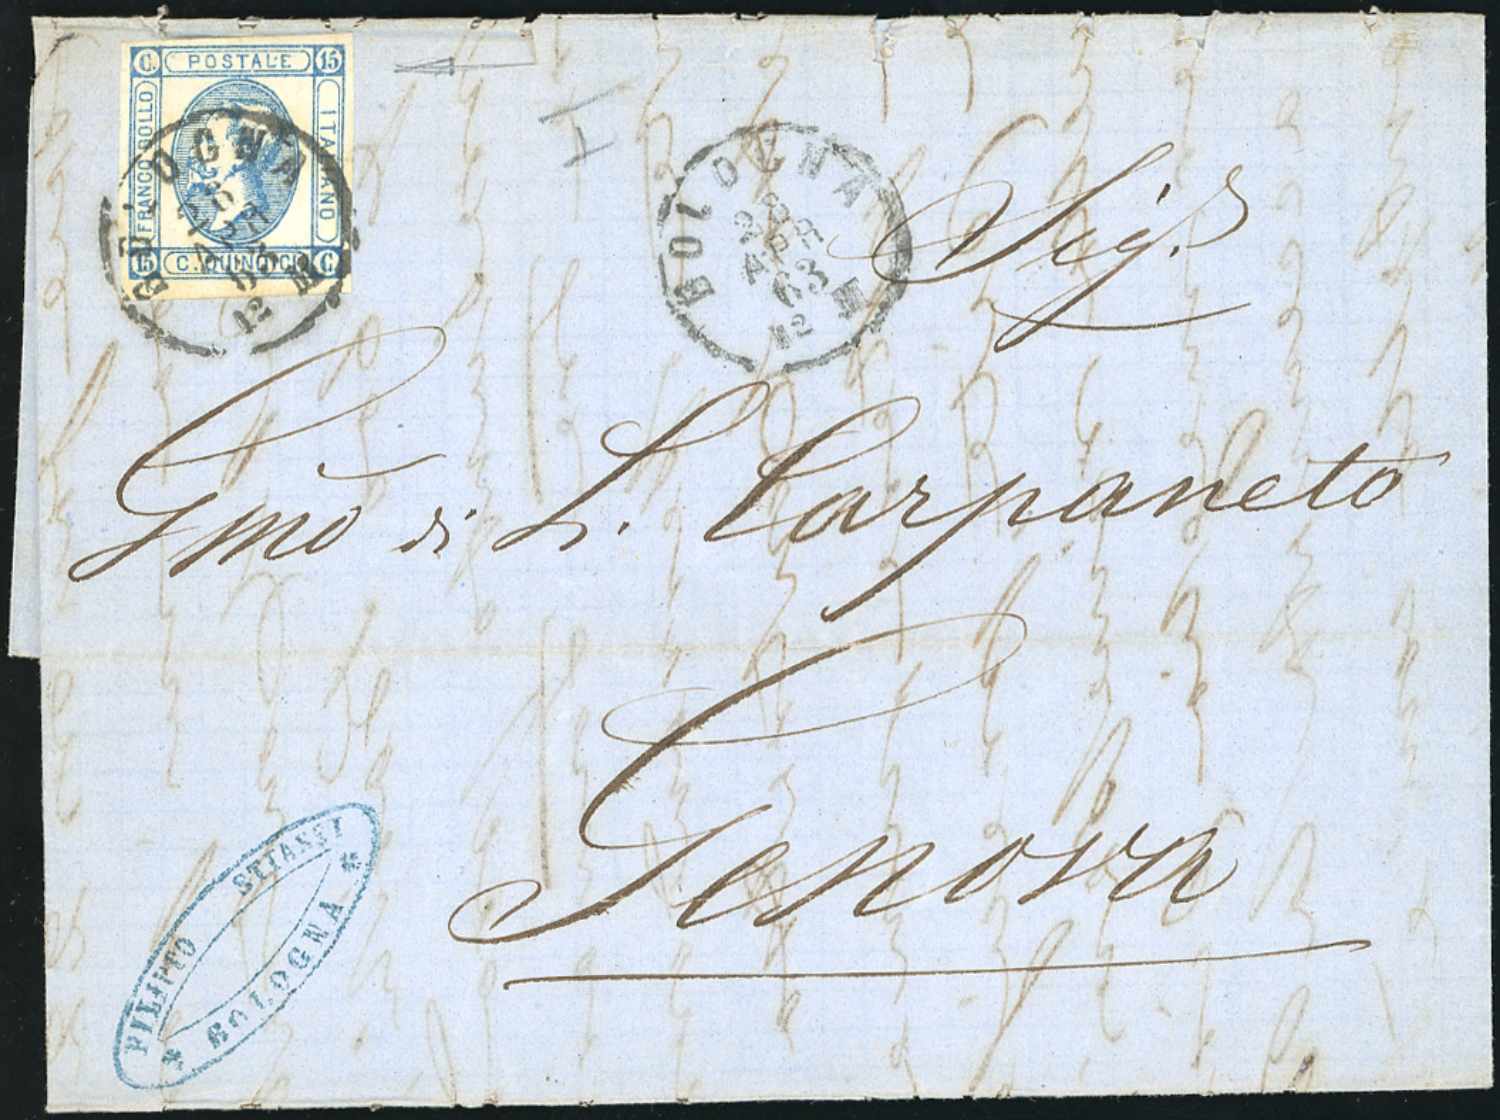 C. POSTALE 15
FRANCO BOLLO
ITALIANO
15 C. QUINDICI C.
BOLOGNA
28
APR
63
12 M
BOLOGNA
28
APR
63
12 M
I
Sig.
Gmo di L. Carpaneto
Genova
FILIPPO STIASSI
* BOLOGNA *